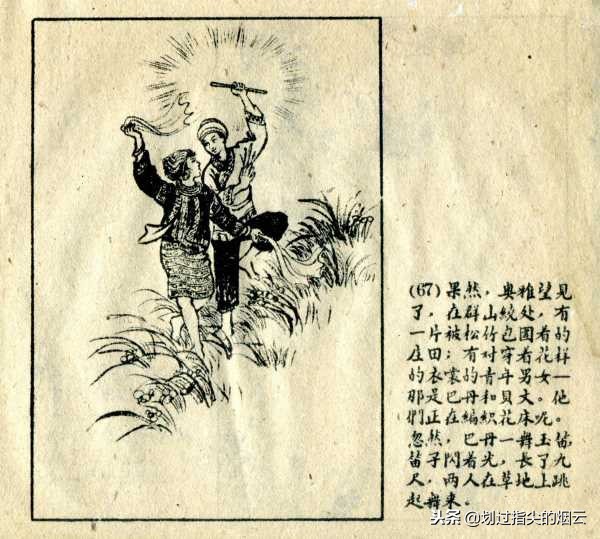 (67) 果然，奥雅望见
了，在群山繞处，有
一片被松竹包围着的
庄田；有对穿着花样
的衣裳的青年男女—
那是巴丹和貝文。他
們正在編織花床呢。
忽然，巴丹一舞玉笛，
笛子閃着光，長了九
尺，两人在草地上跳
起舞来。
头条 @划过指头的烟云